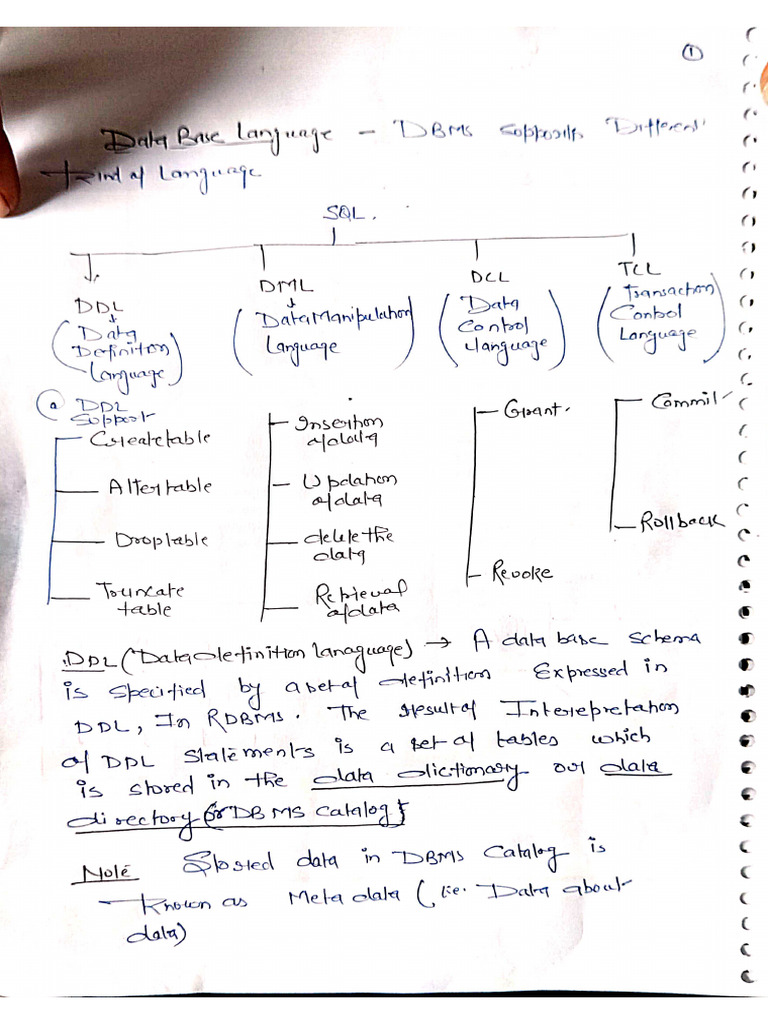 ①
Data Base Language – DBMS Supports Different
Kind of Language
SQL.
DDL
DML
DCL
TCL
(Data Definition Language)
(Data Manipulation Language)
(Data Control Language)
(Transaction Control Language)
(a) DDL Support
Create table
Alter table
Drop table
Truncate table
Insertion of data
Updation of data
delete the data
Retrieval of data
Grant.
Revoke
Commit
Rollback
DDL (Data definition Lanaguage) → A data base schema
is specified by a set of definition Expressed in
DDL, In RDBMS. The result of Interepretation
of DDL Statements is a set of tables which
is stored in the data dictionary or data
directory (or DBMS Catalog)
Note Stored data in DBMS Catalog is
Known as Meta data (ie. Data about
data)